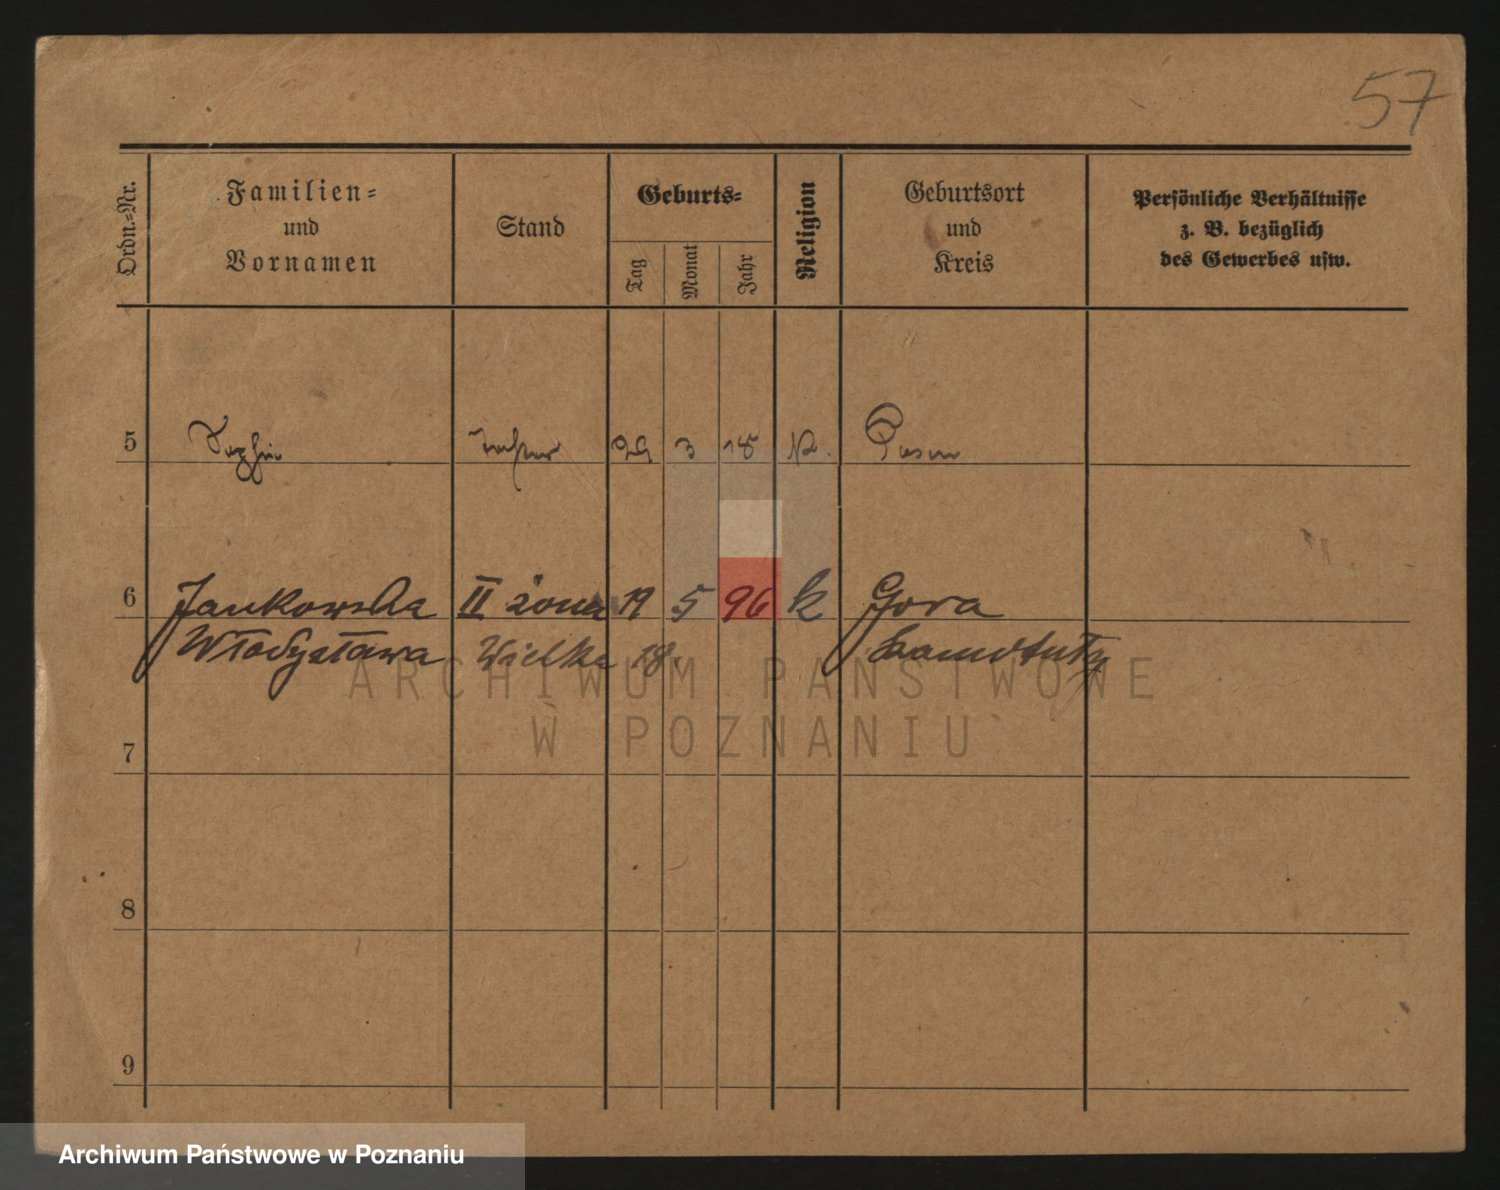 57
Ordn.-Nr.
Familien-
und
Vornamen
Stand
Geburts-
Tag
Monat
Jahr
Religion
Geburtsort
und
Kreis
Persönliche Verhältnisse
z. B. bezüglich
des Gewerbes usw.
5 3 18 Posen
6 Jankowska II żona 19 5 96 k Gora
Włodysława Wielka 18.
7
8
9
ARCHIWUM PAŃSTWOWE
W POZNANIU
Archiwum Państwowe w Poznaniu